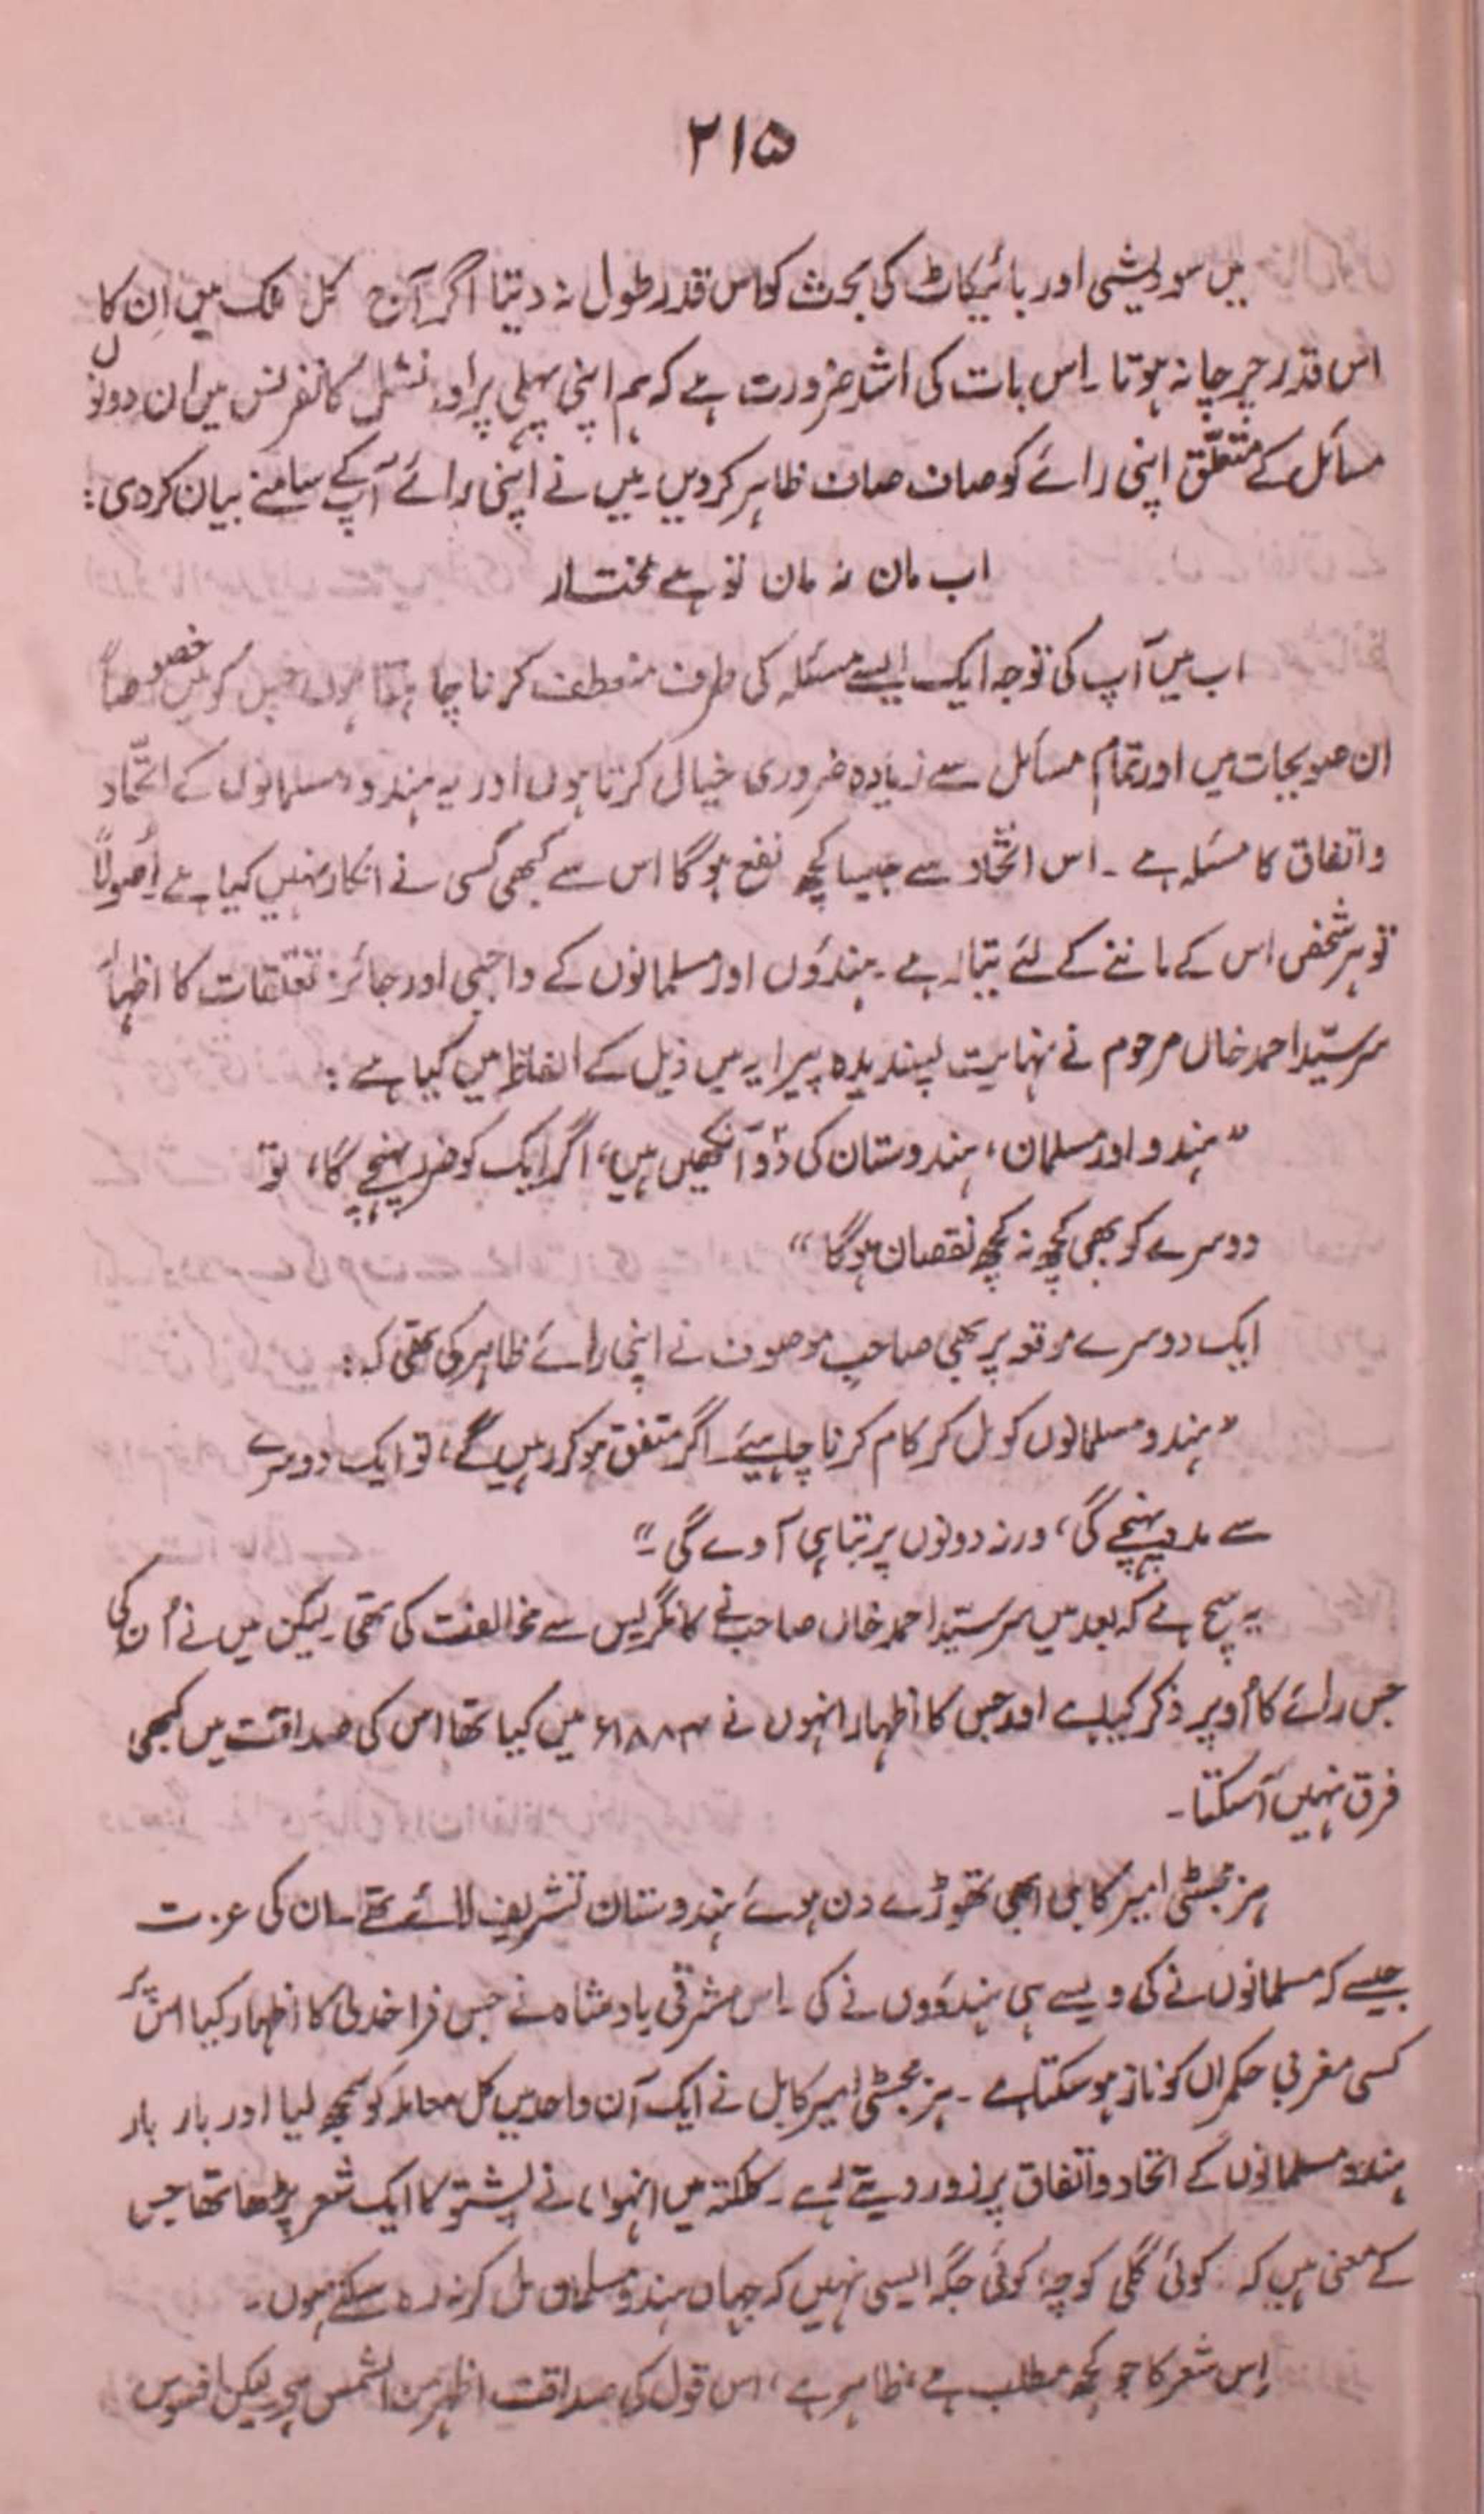 ۲۱۵
میں سودیشی اور بائیکاٹ کی بحث کو اس قدر طول نہ دیتا اگر آج کل ملک میں اِن کا
اس قدر چرچا نہ ہوتا ۔ اس بات کی اشد ضرورت ہے کہ ہم اپنی پہلی پراونشل کانفرنس میں ان دونوں
مسائل کے متعلّق اپنی رائے کو صاف صاف ظاہر کر دیں ۔ میں نے اپنی رائے آپ کے سامنے بیان کر دی :
اب مان نہ مان تو ہے مختار
اب میں آپ کی توجہ ایک ایسے مسئلہ کی طرف منعطف کرنا چاہتا ہوں جس کو میں خصوصاً
ان صوبجات میں اور تمام مسائل سے زیادہ ضروری خیال کرتا ہوں اور یہ ہندو مسلمانوں کے اتّحاد
و اتفاق کا مسئلہ ہے ۔ اس اتّحاد سے جیسا کچھ نفع ہو گا اس سے کبھی کسی نے انکار نہیں کیا ہے اُصولاً
تو ہر شخص اس کے ماننے کے لئے تیار ہے ۔ ہندؤوں اور مسلمانوں کے واجبی اور جائز تعلّقات کا اظہار
سر سیّد احمد خاں مرحوم نے نہایت پسندیدہ پیرایہ میں ذیل کے الفاظ میں کیا ہے :
”ہندو اور مسلمان ، ہندوستان کی دو آنکھیں ہیں ، اگر ایک کو ضرر پہنچے گا ، تو
دوسرے کو بھی کچھ نہ کچھ نقصان ہوگا “
ایک دوسرے موقعہ پر بھی صاحبِ موصوف نے اپنی رائے ظاہر کی تھی کہ :
”ہندو مسلمانوں کو مل کر کام کرنا چاہیئے ۔ اگر متفق ہو کر رہیں گے ، تو ایک دوسرے
سے مدد پہنچے گی ، ورنہ دونوں پر تباہی آوے گی ۔“
یہ سچ ہے کہ بعد میں سر سیّد احمد خاں صاحب نے کانگریس سے مخالفت کی تھی ۔ لیکن میں نے اُن کی
جس رائے کا اُوپر ذکر کیا ہے اور جس کا اظہار انہوں نے ۱۸۸۴ء میں کیا تھا اس کی صداقت میں کبھی
فرق نہیں آ سکتا ۔
ہز مجسٹی امیر کابل ابھی تھوڑے دن ہوئے ہندوستان تشریف لائے تھے ۔ ان کی عزت
جیسے کہ مسلمانوں نے کی ویسے ہی ہندؤوں نے کی ۔ اس مشرقی بادشاہ نے جس فراخدلی کا اظہار کیا اس پر
کسی مغربی حکمراں کو ناز ہو سکتا ہے ۔ ہز مجسٹی امیر کابل نے ایک آن واحد میں کل معاملہ کو سمجھ لیا اور بار بار
ہندو مسلمانوں کے اتحاد و اتفاق پر زور دیتے رہے ۔ کلکتہ میں انہوں نے پشتو کا ایک شعر پڑھا تھا جس
کے معنی ہیں کہ کوئی گلی کوچہ ، کوئی جگہ ایسی نہیں کہ جہاں ہندو مسلمان مل کر نہ رہ سکتے ہوں ۔
اِس شعر کا جو کچھ مطلب ہے ، ظاہر ہے ، اس قول کی صداقت اظہر من الشمس ہے لیکن افسوس